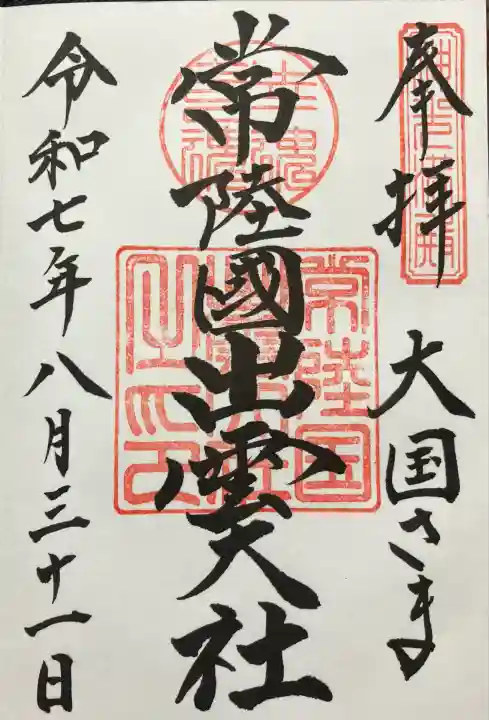 奉拝
大国さま
常陸國出雲大社
常陸国
之印
令和七年八月三十一日